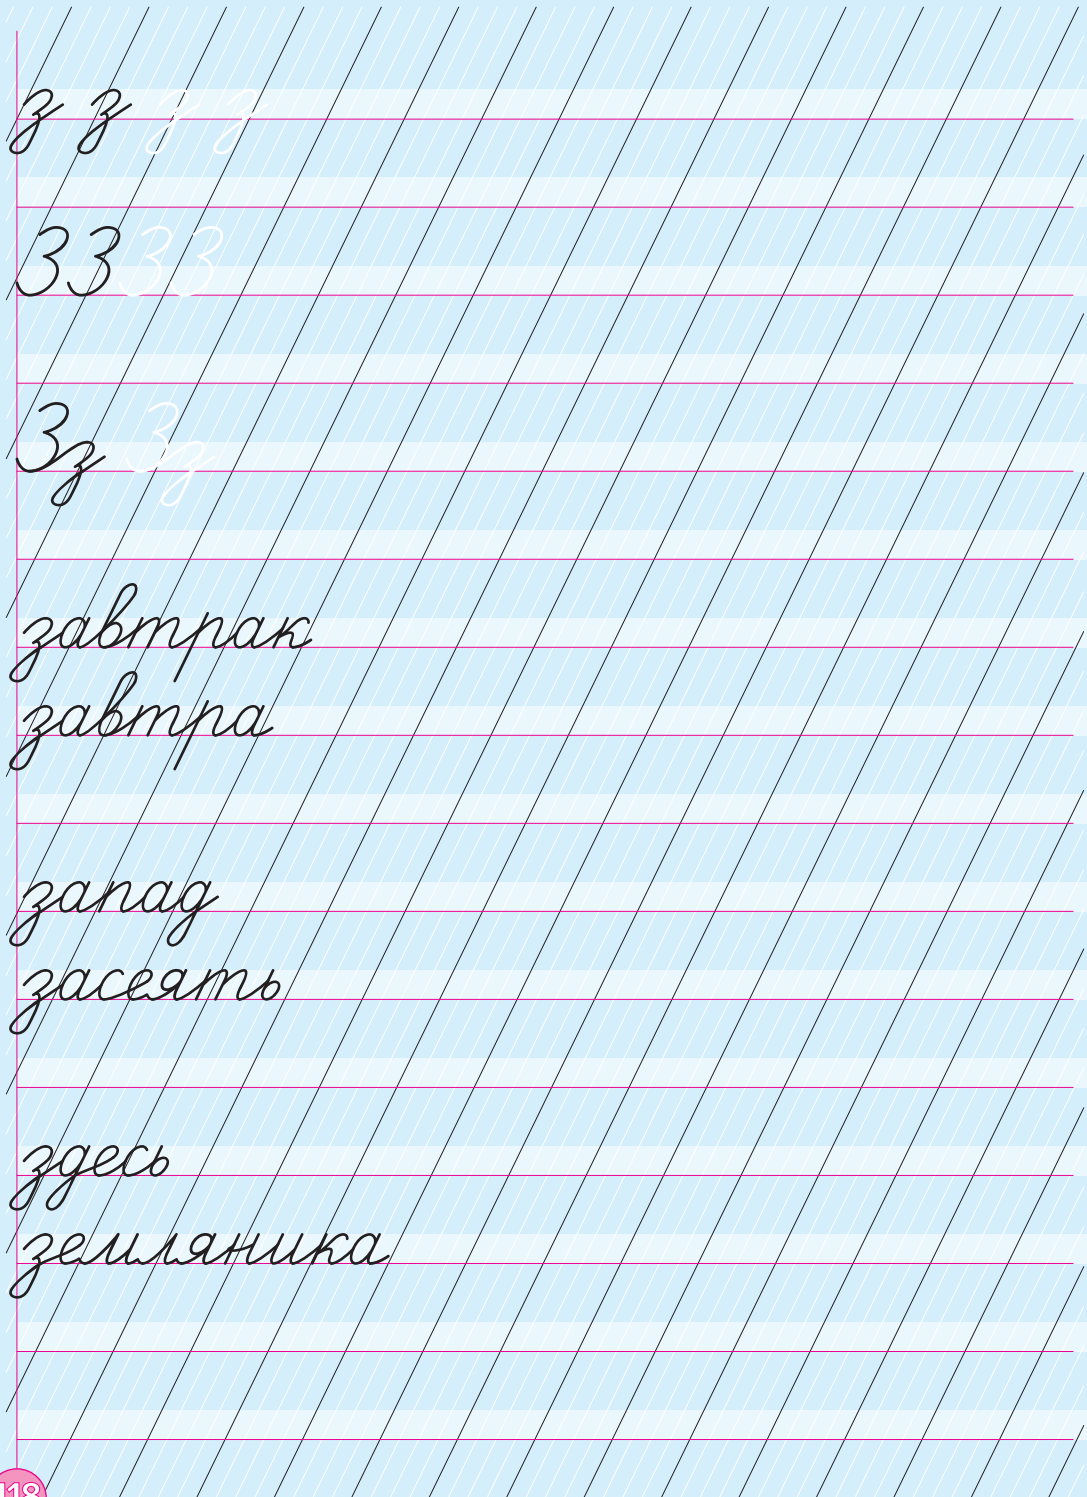 з з з з
З З З З
Зз Зз
завтрак
завтра
запад
засеять
здесь
земляника
118